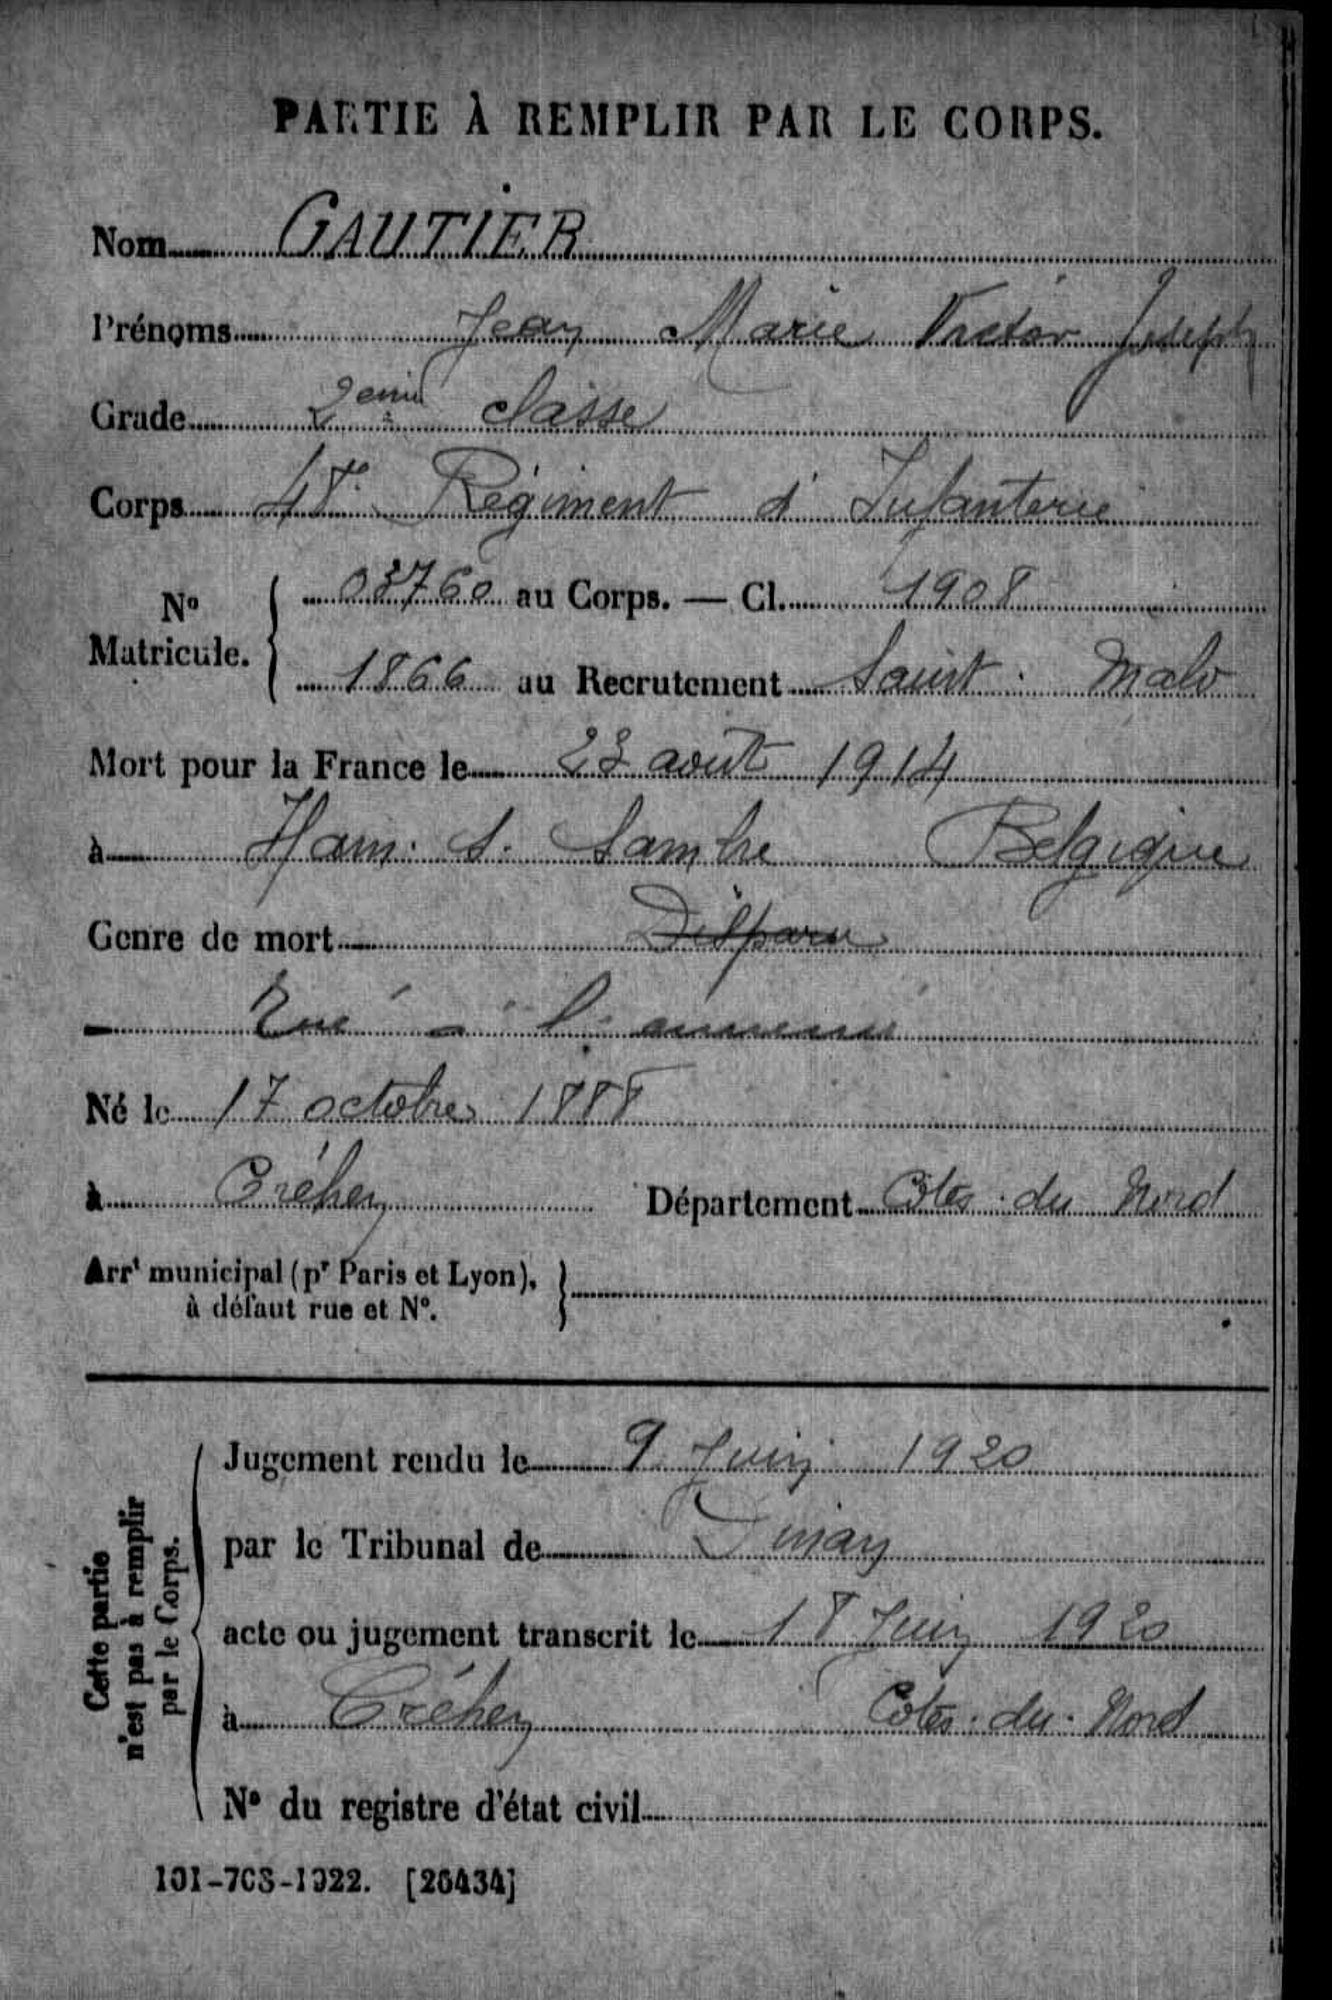 PARTIE À REMPLIR PAR LE CORPS.
Nom GAUTIER
Prénoms Jean Marie Victor Joseph
Grade 2eme classe
Corps 48e Régiment d'Infanterie
No Matricule. 03760 au Corps. — Cl. 1908
1866 au Recrutement Saint. Malo
Mort pour la France le 23 août 1914
à Ham. S. Sambre Belgique
Genre de mort Disparu
Tué à l'ennemi
Né le 17 octobre 1888
à Créhen Département Côtes. du Nord
Arrt municipal (pr Paris et Lyon),
à défaut rue et No.
Cette partie n'est pas à remplir par le Corps.
Jugement rendu le 9 Juin 1920
par le Tribunal de Dinan
acte ou jugement transcrit le 18 Juin 1920
à Créhen Côtes. du. Nord
No du registre d'état civil
101-708-1922. [26434]